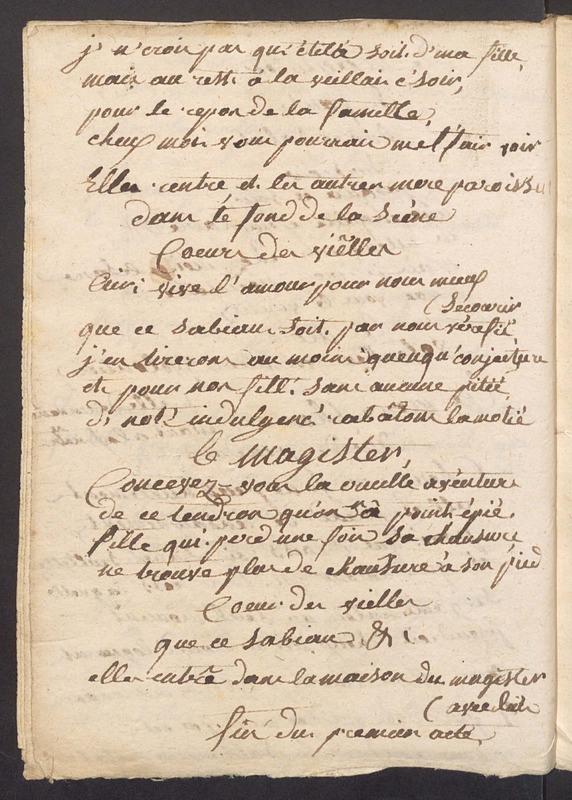 j' n'crois pas qu'çtila soit d'ma fille,
mais au reste à la veillai c'soir,
pour le repos de la famille,
cheux moi vous pourrais me l'fair voir
Elles rentre et les autres mere paroisse
dans le fond de la Scène
Coeurs des vieilles
vive l'amour pour nous mieux
(Secourir
que ce sabiau soit par nous vérifié
j'en tirerons au moins queuqu'conjecture
et pour nos fill' sans aucune pitié
d' not' indulgenc' rabâtons la motié
le Magister,
Concevez-vous la vieille aventure
de ce tendron qu'on a point épié.
fille qui perd une fois sa chaussure
ne trouve plus de chausure à son pied
Coeur des vielles
que ce sabiau &.
elles entre dans la maison du magister
(avec lui
fin du premier acte,